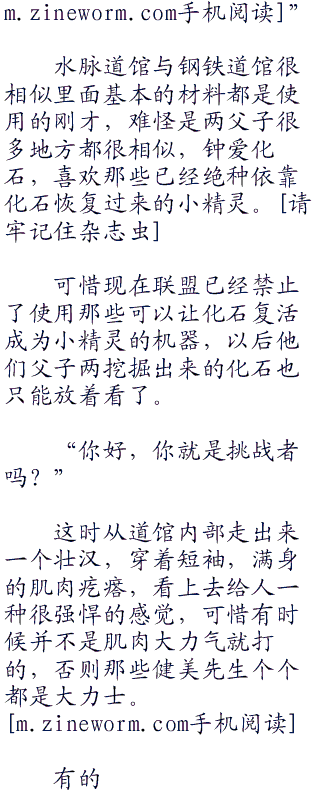 m.zineworm.com手机阅读]”
水脉道馆与钢铁道馆很
相似里面基本的材料都是使
用的刚才，难怪是两父子很
多地方都很相似，钟爱化
石，喜欢那些已经绝种依靠
化石恢复过来的小精灵。[请
牢记住杂志虫]
可惜现在联盟已经禁止
了使用那些可以让化石复活
成为小精灵的机器，以后他
们父子两挖掘出来的化石也
只能放着看了。
“你好，你就是挑战者
吗？”
这时从道馆内部走出来
一个壮汉，穿着短袖，满身
的肌肉疙瘩，看上去给人一
种很强悍的感觉，可惜有时
候并不是肌肉大力气就打
的，否则那些健美先生个个
都是大力士。
[m.zineworm.com手机阅读]
有的